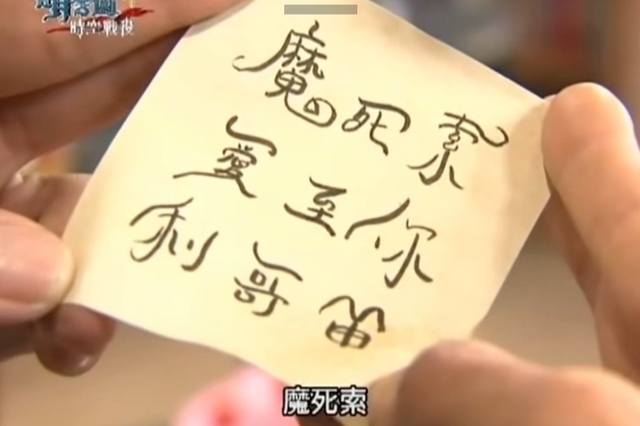 時空戰役
魔死索
愛至你
利哥笛
魔死索